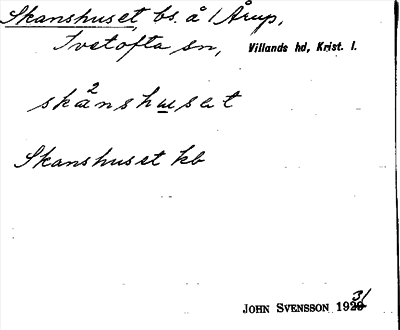 Skanshuset, bs. å 1 Årup,
Ivetofta sn, Villands hd, Krist. l.
ska²nshusat
Skanshuset kb
JOHN SVENSSON 1931